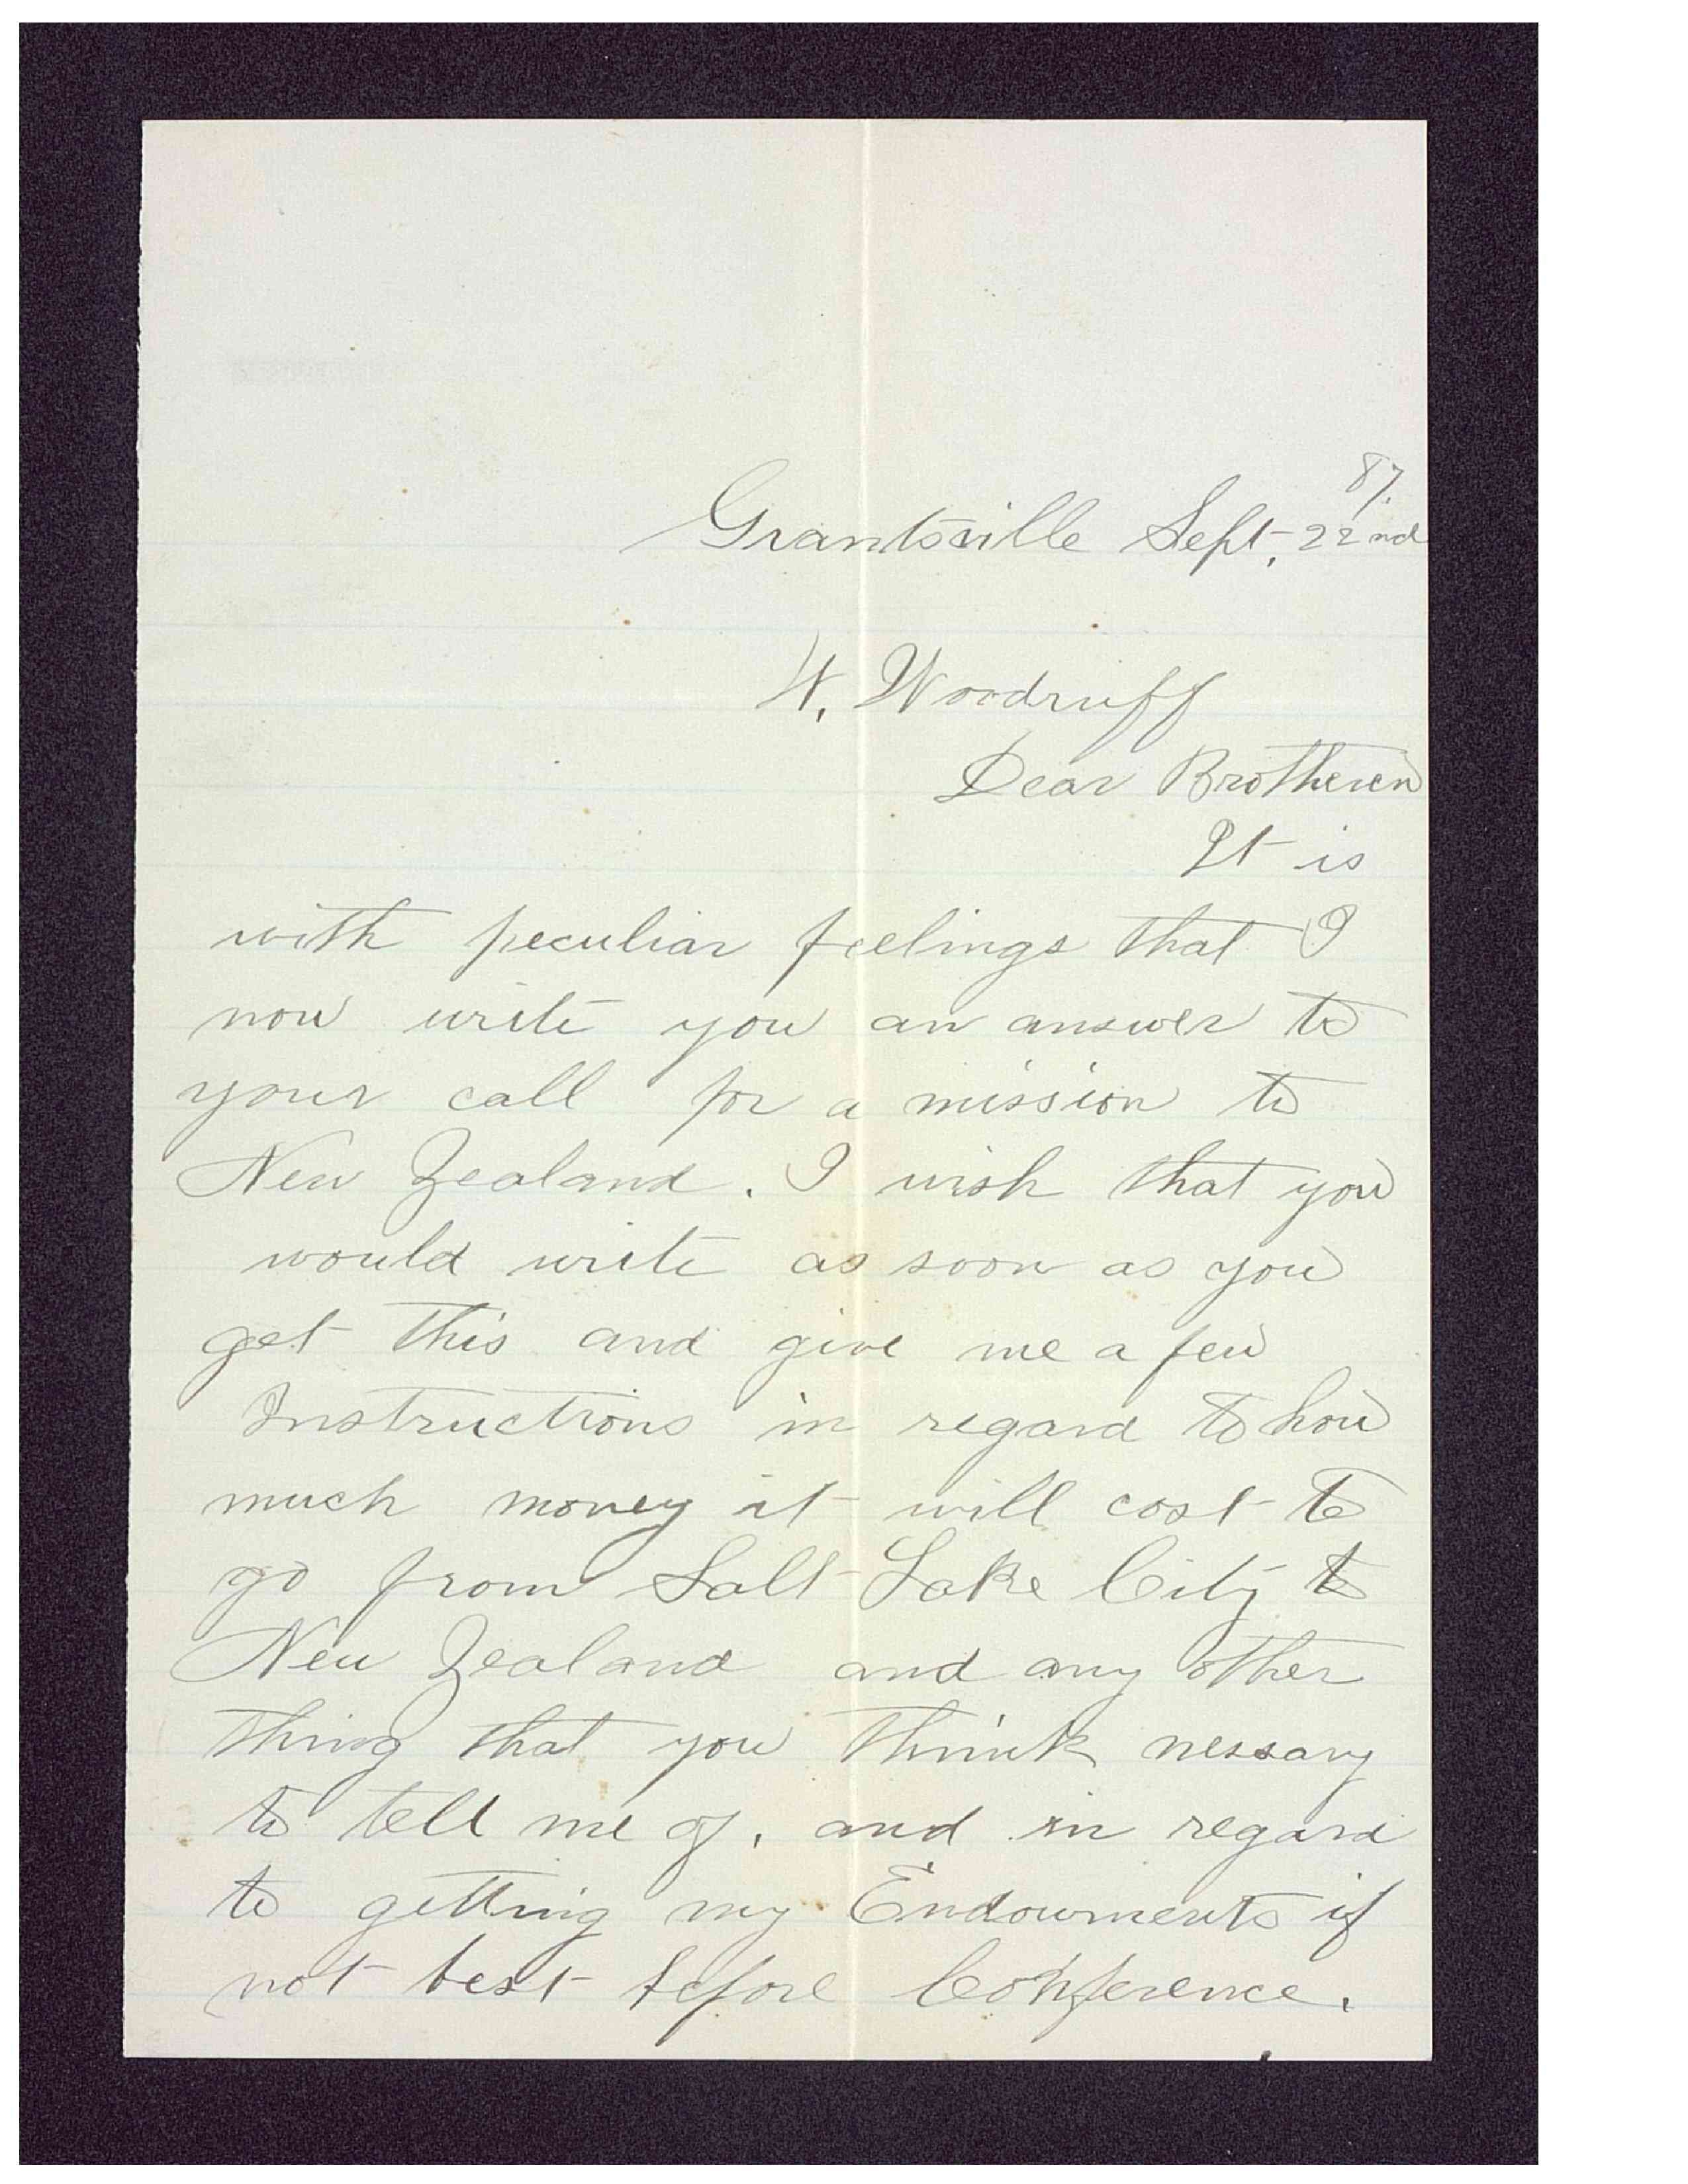 87.
Grantsville Sept. 22nd
W. Woodruff
Dear Brotheren
It is
with peculiar feelings that I
now write you an answer to
your call for a mission to
New Zealand. I wish that you
would write as soon as you
get this and give me a few
Instructions in regard to how
much money it will cost to
go from Salt Lake City to
New Zealand and any other
thing that you think nessary
to tell me of, and in regard
to getting my Endowments if
not best before Conference.